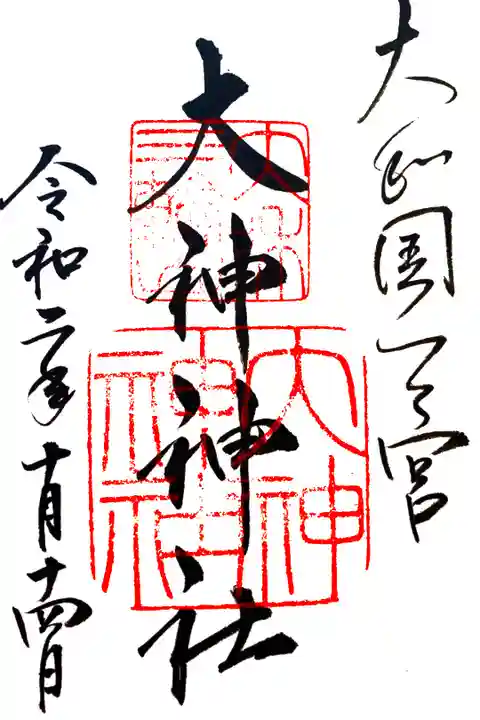 大和国一之宮
大神神社
令和二年十月十四日
大神
神社